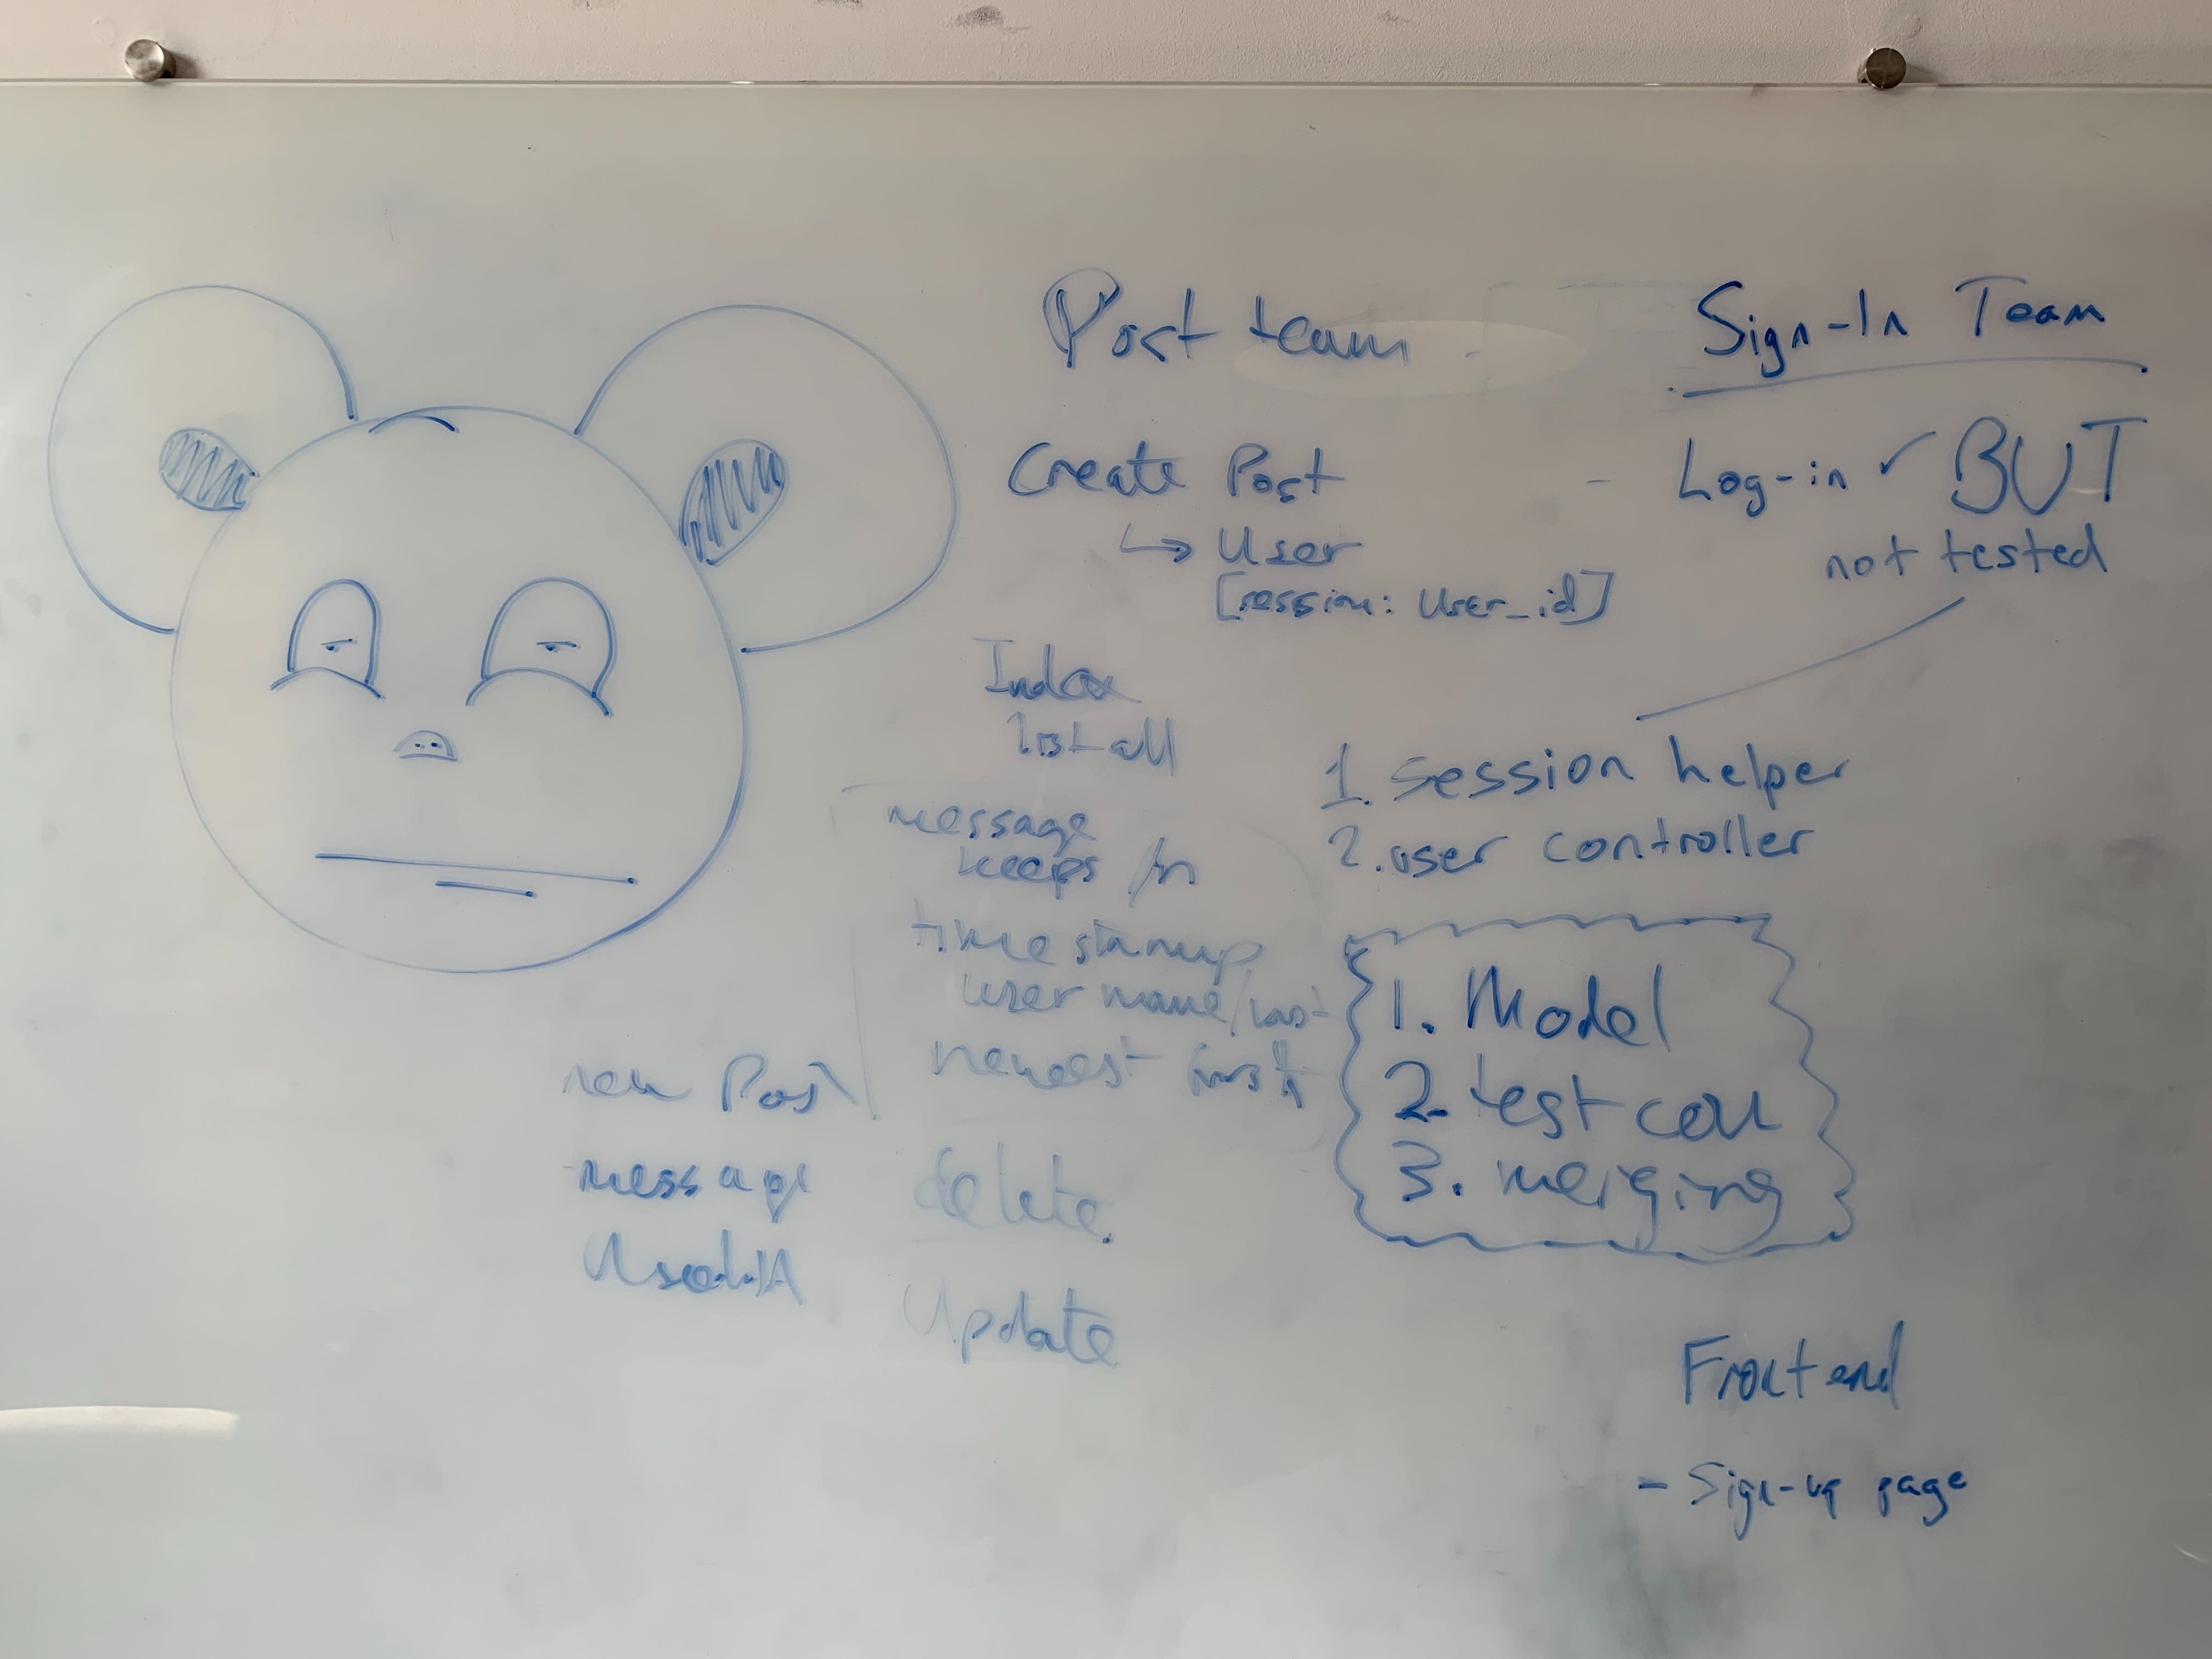 Post team
Create Post
↳ User
[session: user_id]
Index
list all
message
keeps /n
time stamp
user name/last
newest first
delete.
Update
new Post
message
Sign-In Team
Log-in ✓ BUT
not tested
1. session helper
2. user controller
1. Model
2. test
3. merging
Front end
- Sign-up page